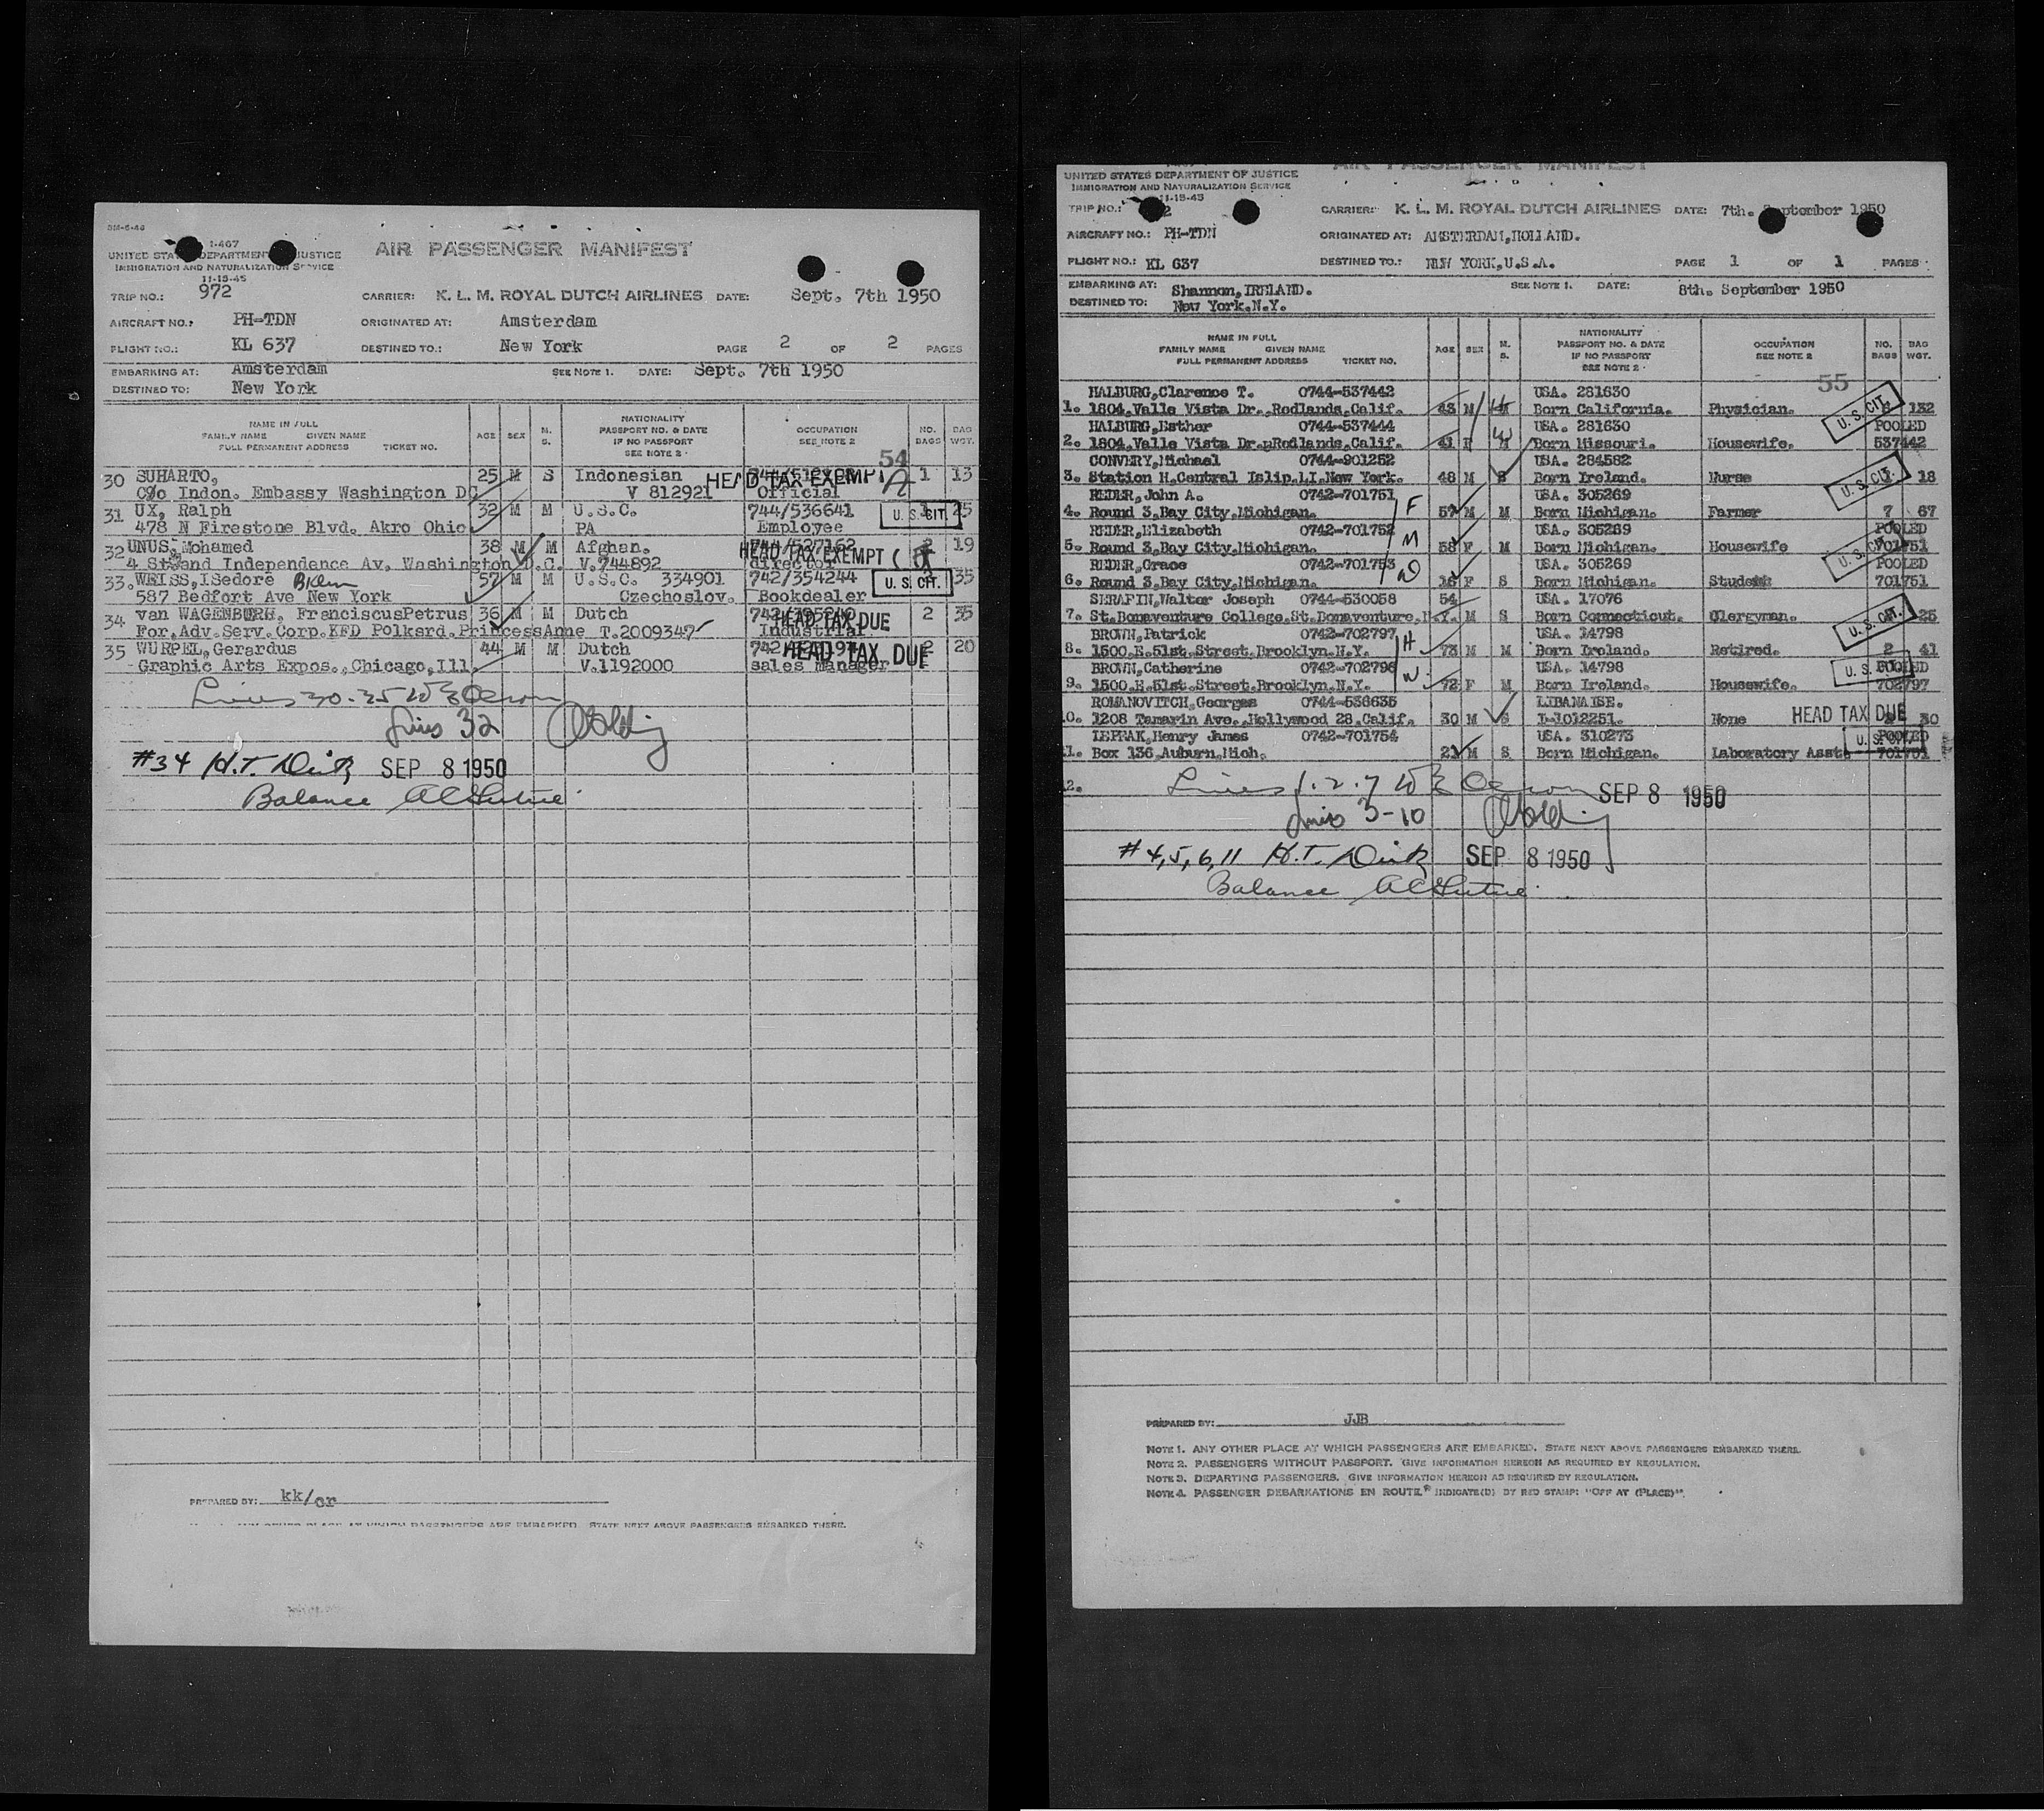 BM-6-48
1-467
UNITED STATES DEPARTMENT OF JUSTICE
IMMIGRATION AND NATURALIZATION SERVICE
11-15-45
AIR PASSENGER MANIFEST
TRIP NO.: 972
CARRIER: K. L. M. ROYAL DUTCH AIRLINES DATE: Sept. 7th 1950
AIRCRAFT NO.: PH-TDN ORIGINATED AT: Amsterdam
FLIGHT NO.: KL 637 DESTINED TO.: New York PAGE 2 OF 2 PAGES
EMBARKING AT: Amsterdam SEE NOTE 1. DATE: Sept. 7th 1950
DESTINED TO: New York
NAME IN FULL
FAMILY NAME GIVEN NAME
FULL PERMANENT ADDRESS TICKET NO.
AGE SEX M. S.
NATIONALITY
PASSPORT NO. & DATE
IF NO PASSPORT
SEE NOTE 2
OCCUPATION
SEE NOTE 2
NO. BAGS BAG WGT.
54
30 SUHARTO, 25 M S Indonesian HEAD TAX EXEMPT 1 13
C/o Indon. Embassy Washington DC V 812921 Official
31 UX, Ralph 32 M M U.S.C. 744/536641 U. S. CIT. 25
478 N Firestone Blvd. Akro Ohio PA Employee
32 UNUS, Mohamed 38 M M Afghan. HEAD TAX EXEMPT 2 19
4 St and Independence Av. Washington D.C. V.744892 director
33. WEISS, ISedore 57 M M U.S.C. 334901 742/354244 U. S. CIT. 35
587 Bedfort Ave New York Czechoslov. Bookdealer
34 van WAGENBURH, FranciscusPetrus 36 M M Dutch HEAD TAX DUE 2 35
For.Adv.Serv.Corp.KFD Polkard.PrincessAnne T.2009347 Industrial
35 WURPEL, Gerardus 44 M M Dutch HEAD TAX DUE 2 20
Graphic Arts Expos., Chicago, Ill. V.1192000 sales manager
Lines 30-35
Lines 32
#34 H.T. SEP 8 1950
Balance
PREPARED BY: kk/or
STATE NEXT ABOVE PASSENGERS EMBARKED THERE.
AIR PASSENGER MANIFEST
UNITED STATES DEPARTMENT OF JUSTICE
IMMIGRATION AND NATURALIZATION SERVICE
11-15-45
TRIP NO.: CARRIER: K. L. M. ROYAL DUTCH AIRLINES DATE: 7th. September 1950
AIRCRAFT NO.: PH-TDN ORIGINATED AT: AMSTERDAM, HOLLAND.
FLIGHT NO.: KL 637 DESTINED TO.: NEW YORK, U.S.A. PAGE 1 OF 1 PAGES
EMBARKING AT: Shannon, IRELAND. SEE NOTE 1. DATE: 8th. September 1950
DESTINED TO: New York.N.Y.
NAME IN FULL
FAMILY NAME GIVEN NAME
FULL PERMANENT ADDRESS TICKET NO.
AGE SEX M. S.
NATIONALITY
PASSPORT NO. & DATE
IF NO PASSPORT
SEE NOTE 2
OCCUPATION
SEE NOTE 2
NO. BAGS BAG WGT.
55
HALBURG, Clarence T. 0744-537442 USA. 281630
1. 1804, Valle Vista Dr., Redlands, Calif. 43 M M Born California. Physician. U. S. CIT. 132
HALBURG, Esther 0744-537444 USA. 281630 POOLED
2. 1804, Valle Vista Dr., Redlands, Calif. 41 F M Born Missouri. Housewife. 537442
CONVERY, Michael 0744-901252 USA. 284582
3. Station H. Central Islip. LI. New York. 48 M S Born Ireland. Nurse U. S. CIT. 18
REDER, John A. 0742-701751 F USA. 305269
4. Round 3, Bay City, Michigan. 57 M M Born Michigan. Farmer 7 67
REDER, Elizabeth 0742-701752 M USA. 305269 POOLED
5. Round 3, Bay City, Michigan. 58 F M Born Michigan. Housewife U. S. CIT. 701751
REDER, Grace 0742-701753 D USA. 305269 POOLED
6. Round 3, Bay City, Michigan. 16 F S Born Michigan. Student 701751
SERAFIN, Walter Joseph 0744-530058 54 USA. 17076
7. St. Bonaventure College, St. Bonaventure, N.Y. M S Born Connecticut. Clergyman. U. S. CIT. 25
BROWN, Patrick 0742-702797 H USA. 14798
8. 1500, E. 51st. Street, Brooklyn. N.Y. 73 M M Born Ireland. Retired. 2 41
BROWN, Catherine 0742-702798 W USA. 14798 U. S. CIT. POOLED
9. 1500, E. 51st. Street, Brooklyn. N.Y. 72 F M Born Ireland. Housewife. 702797
ROMANOVITCH, Georges 0744-536635 LIBANAISE.
10. 1208 Tamarin Ave., Hollywood 28, Calif. 30 M S I-1012251. None HEAD TAX DUE 30
LEPRAK, Henry James 0742-701754 USA. 310273 POOLED
11. Box 136, Auburn, Mich. 21 M S Born Michigan. Laboratory Asst. U. S. CIT. 701751
12. Lines 1.2.7 SEP 8 1950
Lines 3-10
#4,5,6,11 H.T. SEP 8 1950
Balance
PREPARED BY: JJB
NOTE 1. ANY OTHER PLACE AT WHICH PASSENGERS ARE EMBARKED. STATE NEXT ABOVE PASSENGERS EMBARKED THERE.
NOTE 2. PASSENGERS WITHOUT PASSPORT. GIVE INFORMATION HEREON AS REQUIRED BY REGULATION.
NOTE 3. DEPARTING PASSENGERS. GIVE INFORMATION HEREON AS REQUIRED BY REGULATION.
NOTE 4. PASSENGER DEBARKATIONS EN ROUTE. INDICATE(D) BY RED STAMP: "OFF AT (PLACE)".